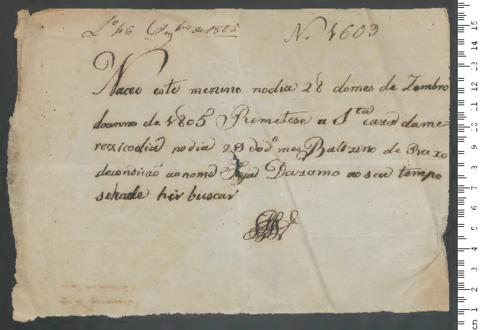 Lº 46 Dezbro de 1805 N. 1609
Naceo este menino nodia 28 domes de Zembro
doanno de 1805 Remetese a Sta caza dame
rezicodia nodia 29 dodº mes Baltizino de Razo
decondicão aonome Dazamo ao seu tempo
sehade hir buscar